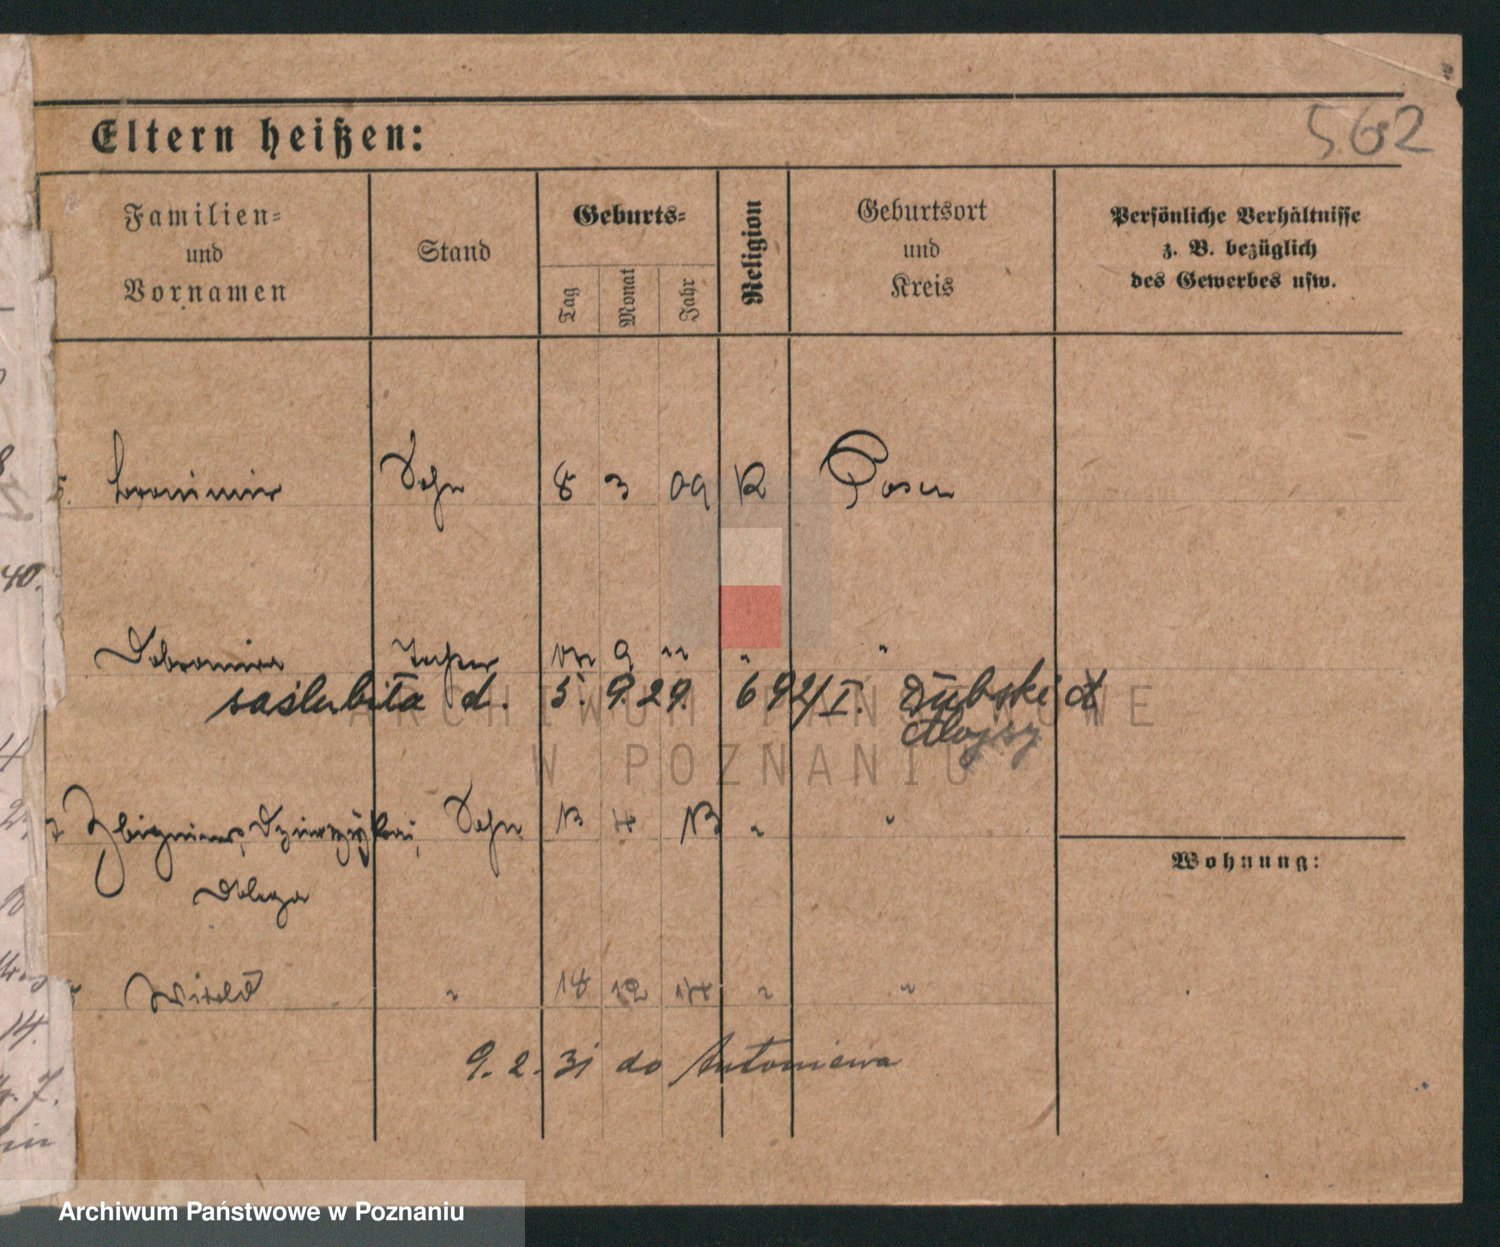 562
Eltern heißen:
Familien- und Vornamen
Stand
Geburts-
Tag
Monat
Jahr
Religion
Geburtsort und Kreis
Persönliche Verhältnisse z. B. bezüglich des Gewerbes usw.
Sohn 8 3 09 K Posen
Dobromira Tochter 9 " " "
zaślubiła d. 5. 9. 29. 692/I. Dubski
Alojzy
Zbigniew, Sohn 13 4 13 " "
Dolega
Wohnung:
Witold " 18 12 14 " "
9. 2. 31 do Antoniewa
ARCHIWUM PAŃSTWOWE
W POZNANIU
40.
14.
Archiwum Państwowe w Poznaniu